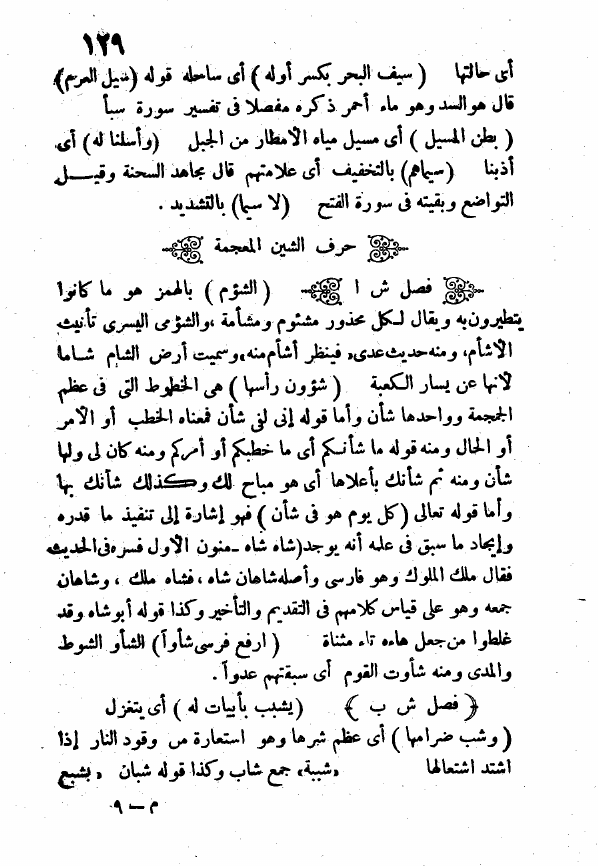 ١٢٩
أى حالتها ( سيف البحر بكسر أوله ) أى ساحله قوله (سيل العرم)
قال هو السد وهو ماء أحمر ذكره مفصلا فى تفسير سورة سبأ
( بطن المسيل ) أى مسيل مياه الأمطار من الجبل (وأسلنا له) أى
أذبنا (سيماهم) بالتخفيف أى علامتهم قال مجاهد السحنة وقيـــل
التواضع وبقيته فى سورة الفتح (لا سيما) بالتشديد .
حرف الشين المعجمة
فصل ش ا ( الشؤم ) بالهمز هو ما كانوا
يتطيرون به ويقال لـكل محذور مشئوم ومشأمة ،والشؤمى اليسرى تأنيث
الأشأم، ومنه حديث عدى، فينظر أشأم منه،وسميت أرض الشام شـاما
لأنها عن يسار الـكعبة ( شؤون رأسها ) هى الخطوط التى فى عظم
الجمجمة وواحدها شأن وأما قوله إنى لفى شأن فمعناه الخطب أو الأمر
أو الحال ومنه قوله ما شأنـكم أى ما خطبكم أو أمركم ومنه كان لى ولها
شأن ومنه ثم شأنك بأعلاها أى هو مباح لك وكـذلك شأنك بها
وأما قوله تعالى (كل يوم هو فى شأن ) فهو إشارة إلى تنفيذ ما قدره
وإيجاد ما سبق فى علمه أنه يوجد(شاه شاه ـمنون الأول فسره فى الحديث
فقال ملك الملوك وهو فارسى وأصله شاهان شاه ،فشاه ملك ، وشاهان
جمعه وهو على قياس كلامهم فى التقديم والتأخير وكذا قوله أبو شاه وقد
غلطوا من جعل هاءه تاء مثناة ( ارفع فرسى شأواً) الشأو الشوط
والمدى ومنه شأوت القوم أى سبقتهم عدواً .
( فصل ش ب ) (يشبب بأبيات له ) أى يتغزل
( وشب ضرامها ) أى عظم شرها وهو استعارة من وقود النار إذا
اشتد اشتعالها ،شيبة، جمع شاب وكذا قوله شبان ، يشبع
م ــ ٩